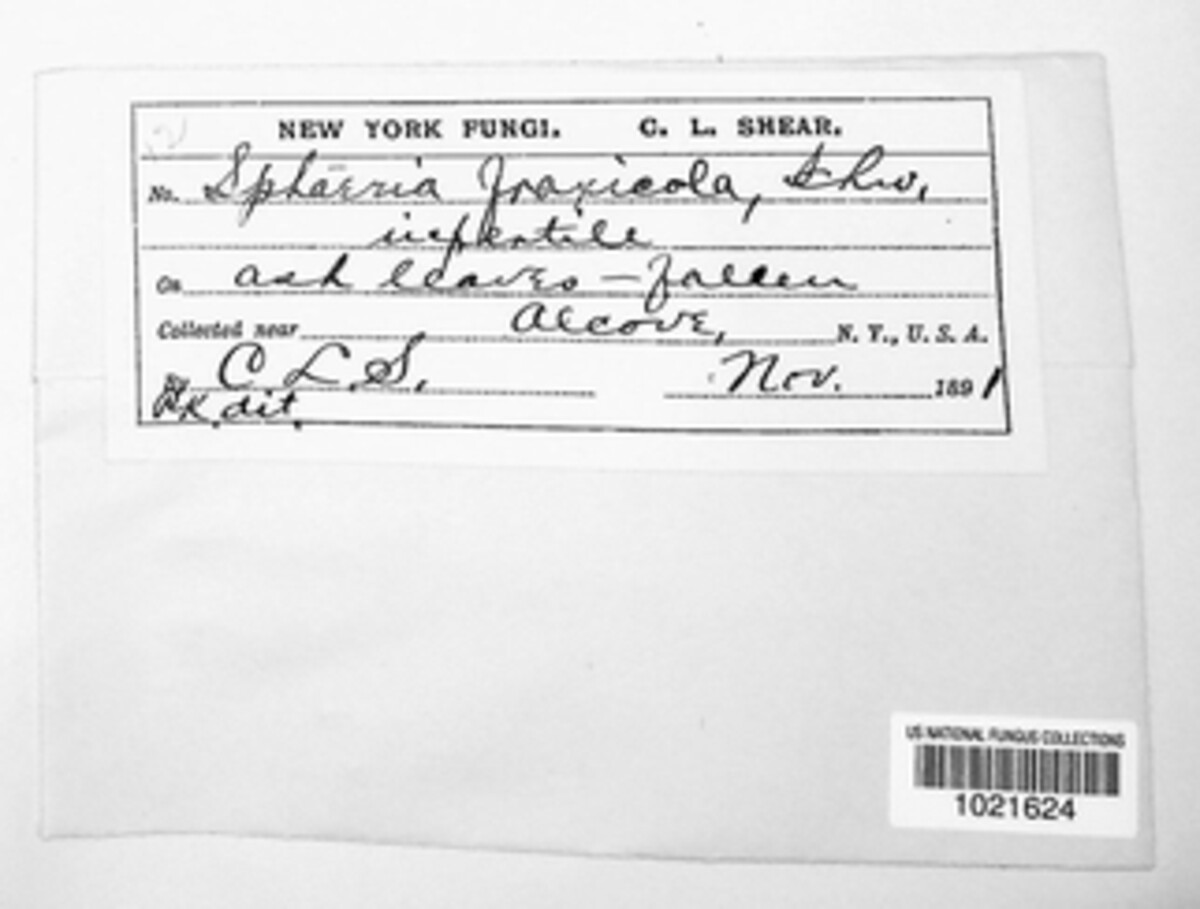 NEW YORK FUNGI. C. L. SHEAR.
No. Sphaeria fraxicola, Schw.
infertile
On ash leaves — fallen
Collected near Alcove, N. Y., U. S. A.
By C. L. S. Nov. 1891
Pk. dit.
US NATIONAL FUNGUS COLLECTIONS
1021624